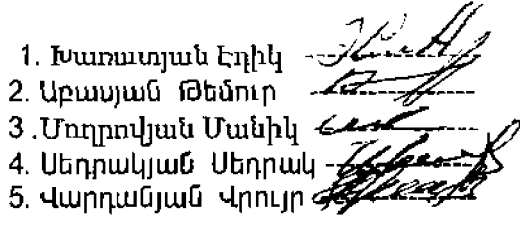 1. Խառատյան Էդիկ
2. Աբասյան Թեմուր
3.Մողրովյան Մանիկ
4. Սեդրակյան Սեդրակ
5. Վարդանյան Վրույր